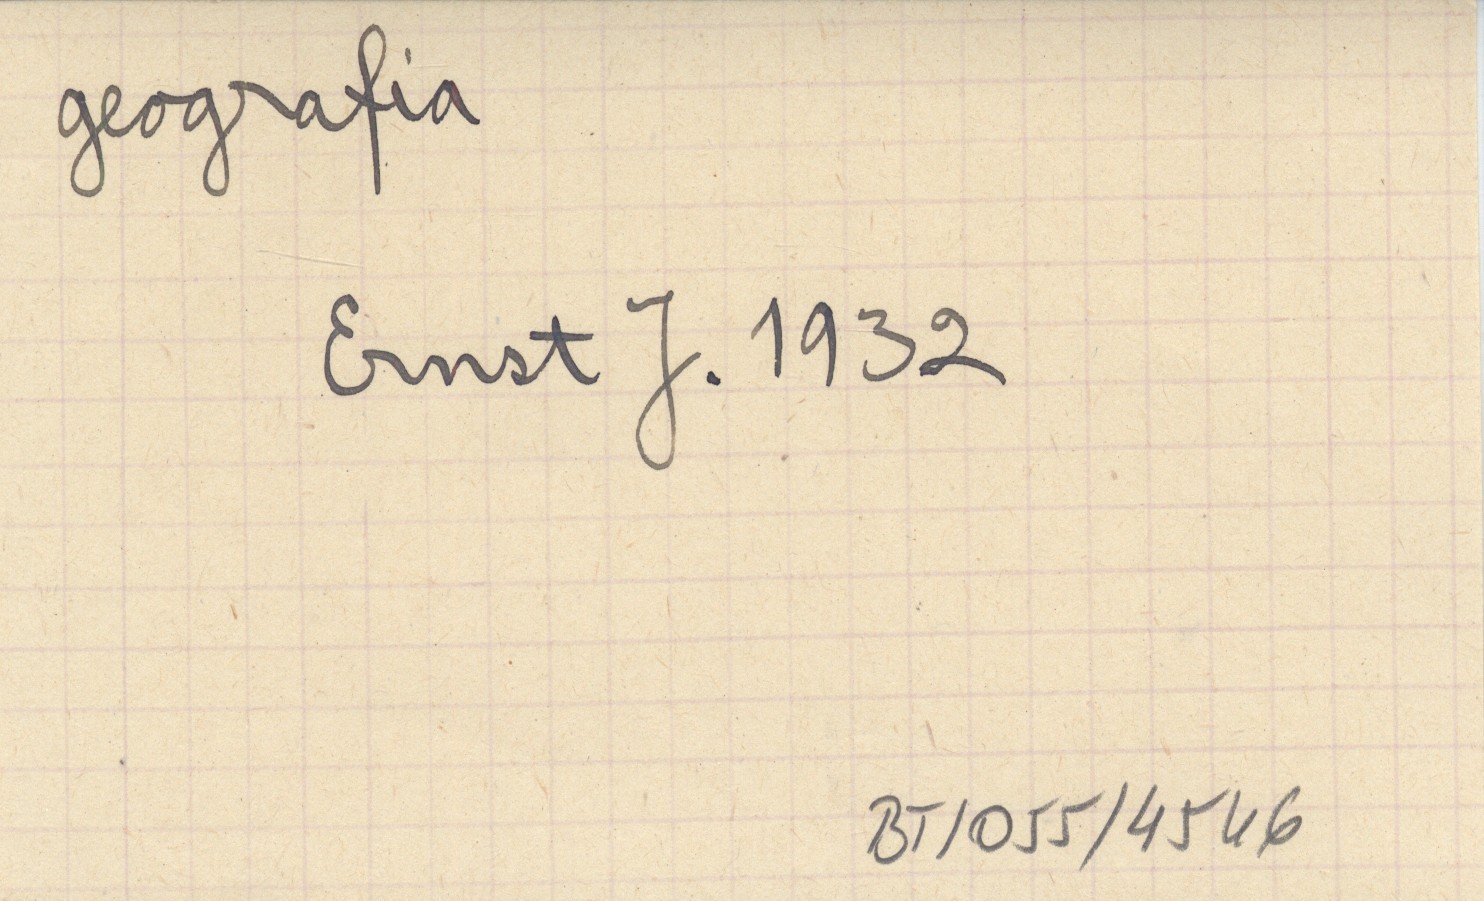 geografia
Ernst J. 1932
BT/055/4546